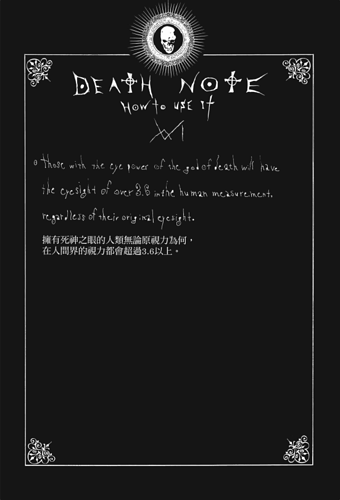 DEATH NOTE
HOW TO USE IT
XVI
o Those with the eye power of the god of death will have
the eyesight of over 3.6 in the human measurement,
regardless of their original eyesight.
擁有死神之眼的人類無論原視力為何，
在人間界的視力都會超過3.6以上。